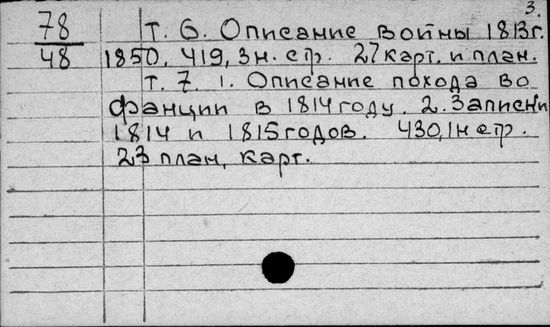 3.
78 т. 6. Описание войны 1813г.
48 1850, 419, 3 н. стр. 27 карт. и план.
т. 7. 1. Описание похода во
Франции в 1814 году. 2. Записки
1814 и 1815 годов. 430, 1 н стр.
23 план, карт.